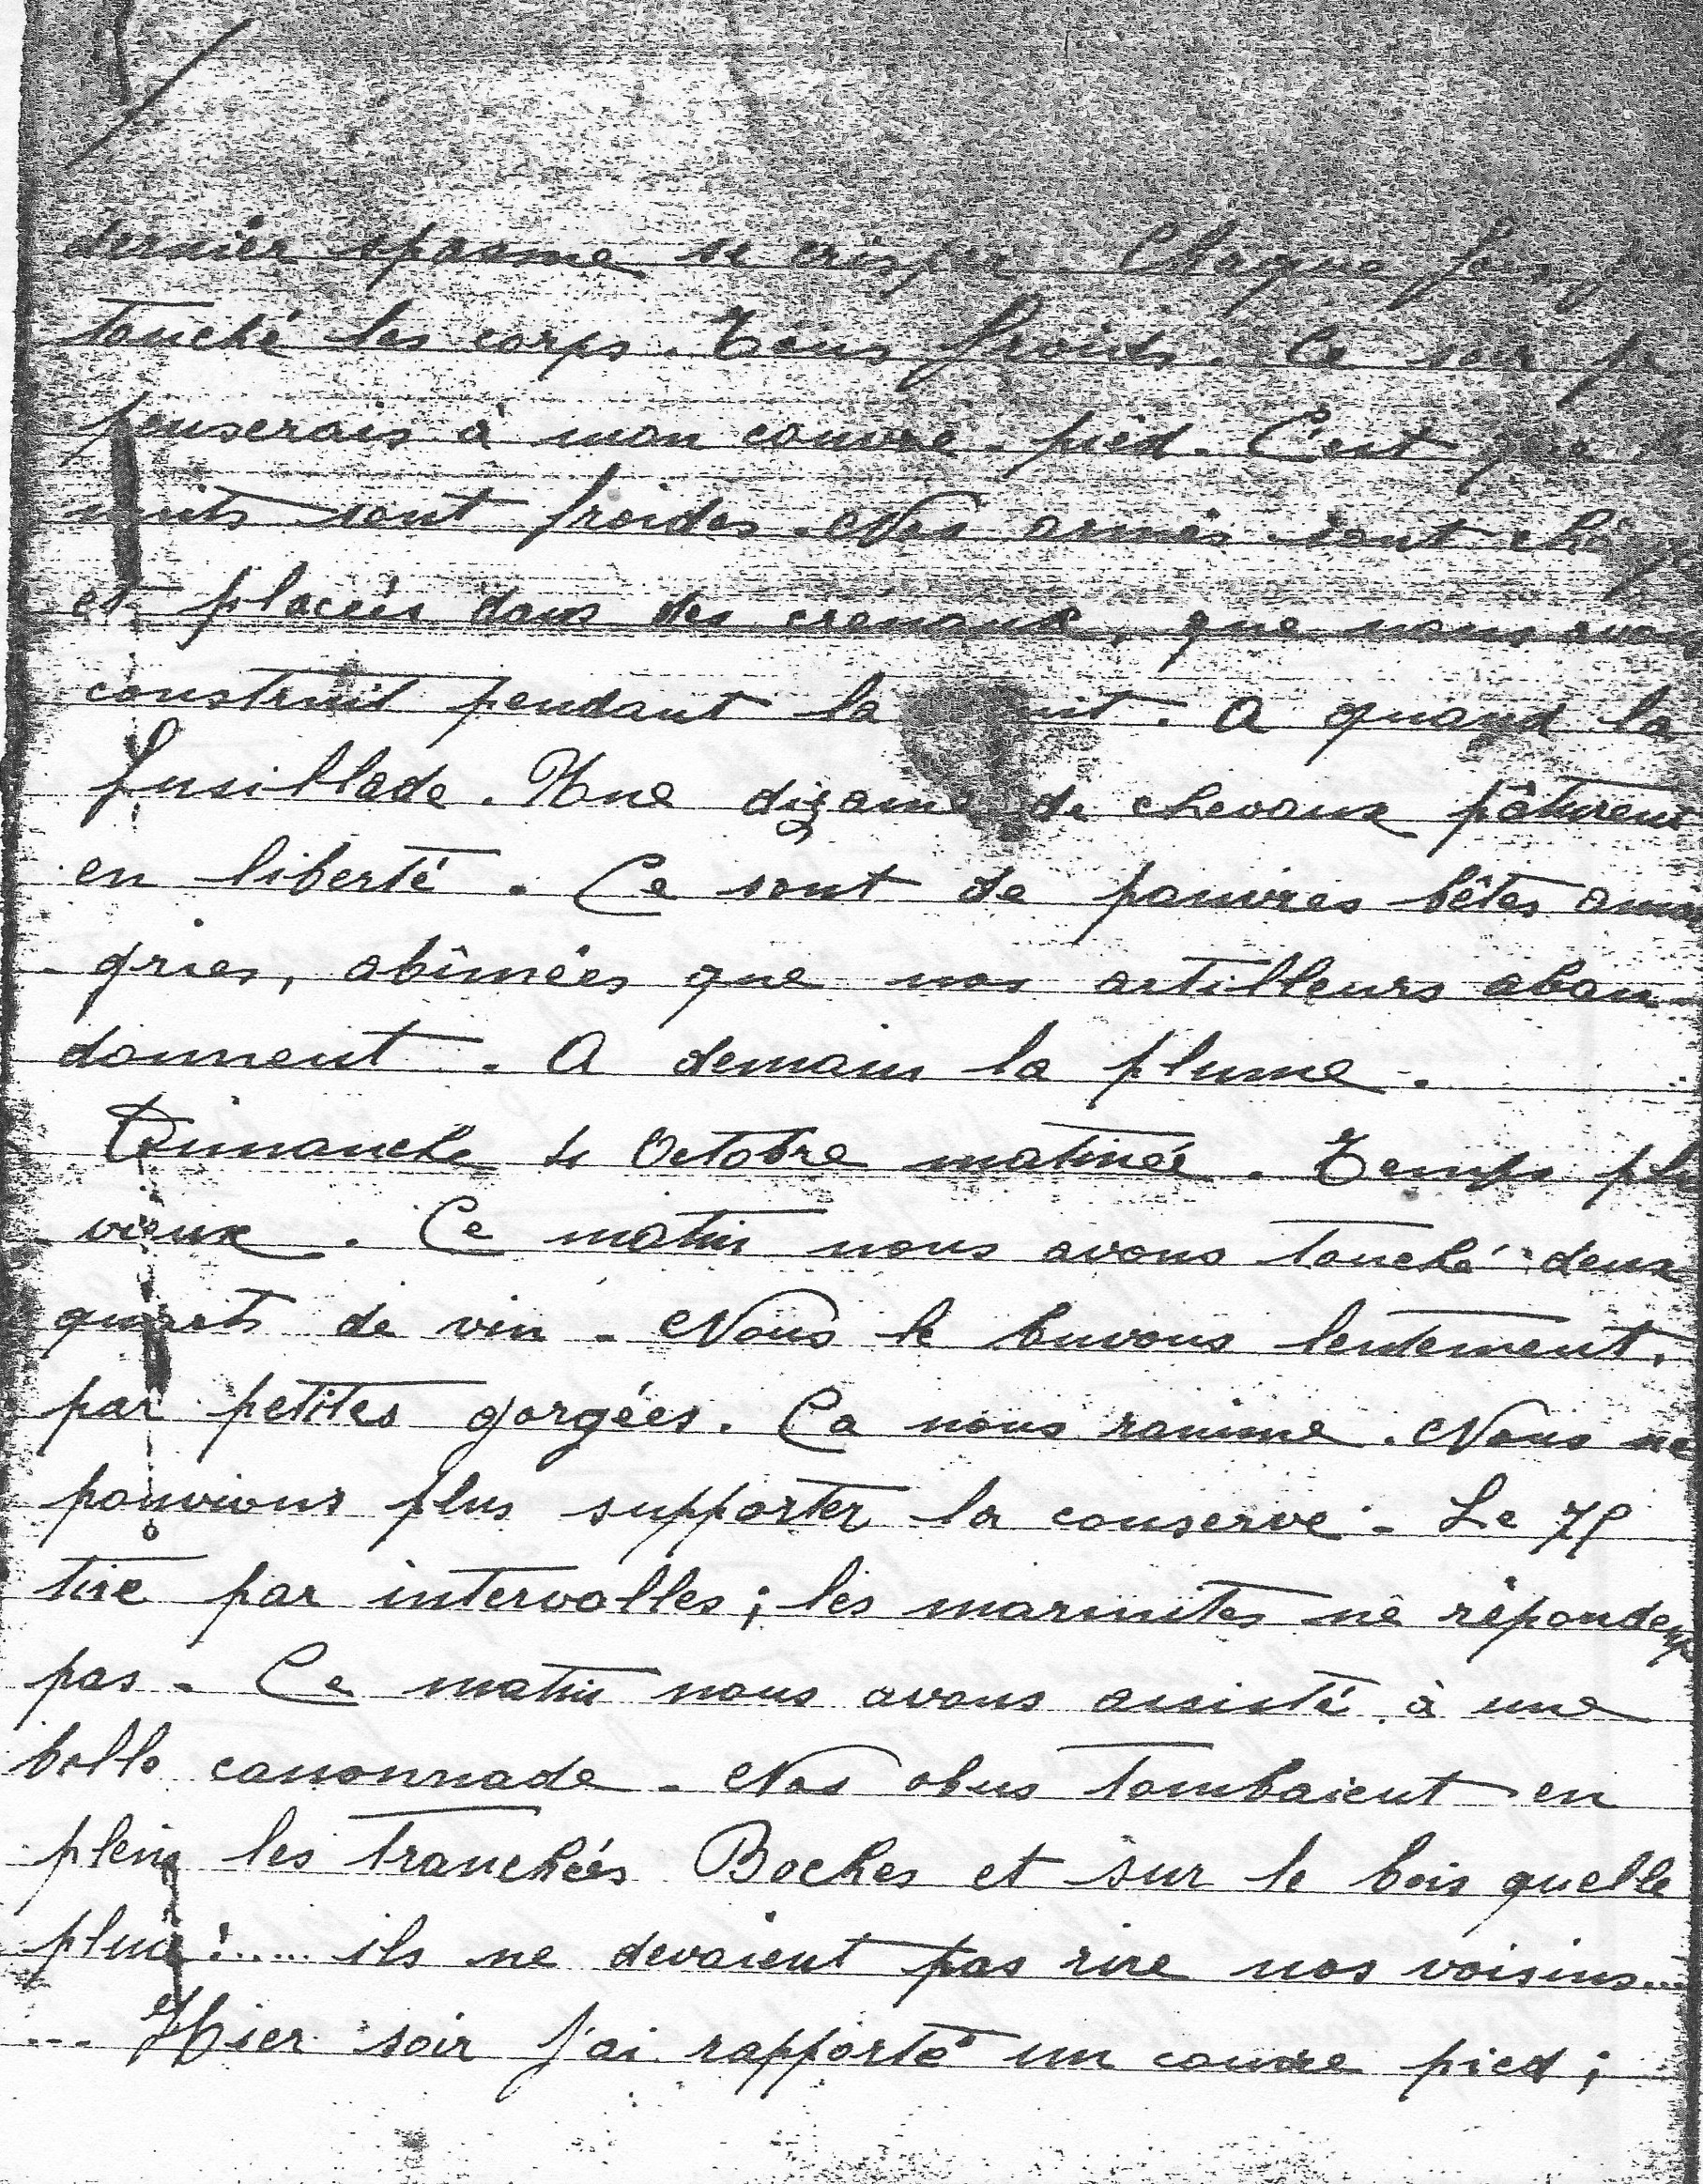 dernier spasme se crisper. Chaque fois
touché les corps. Tous froids. Ce
penserais à mon couvre-pied. C'est que
nuits sont froides. Nos armes sont
et placées dans des crenaux, que nous avons
construit pendant la nuit. A quand la
fusillade. Une dizaine de chevaux pâturent
en liberté. Ce sont de pauvres bêtes amai
gries, abîmées que nos artilleurs aban-
donnent. A demain la plume.
Dimanche 4 Octobre matinée. Temps plu
vieux. Ce matin nous avons touché deux
quarts de vin - Nous le buvons lentement,
par petites gorgées. Ca nous ranime. Nous ne
pouvions plus supporter la conserve - Le 75
tire par intervalles ; les marmites ne répondent
pas - Ce matin nous avons assisté à une
belle canonnade - Nos obus tombaient en
plein les tranchées Boches et sur le bois quelle
pluie !..... ils ne devaient pas rire nos voisins...
... Hier soir j'ai rapporté un couvre pied ;